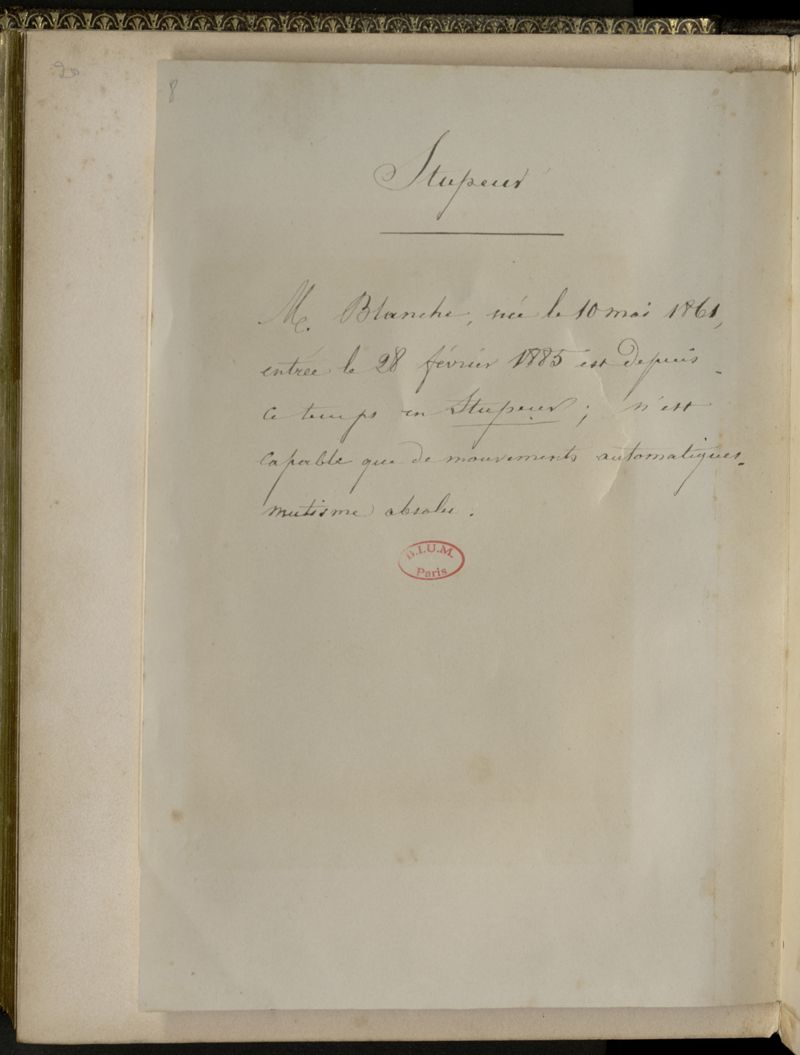 20
8
Stupeur
M. Blanche, née le 10 mai 1861,
entrée le 28 février 1885 est depuis
ce temps en Stupeur ; n'est
capable que de mouvements automatiques.
mutisme absolu.
B.I.U.M.
Paris